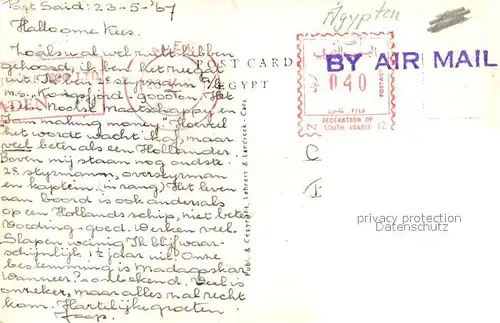 Port Said: 23-5-'67
Ägypten
Hallo ome Kees.
Zoals U al wel zult hebben
gehoord, ik ben het gat
uit. 2e stuurman
m.s. Kongsfjord
POST CARD
EGYPT
ADEN
Noorse Maatschappij en
"Am making money" Hoewel
het wordt wacht lopen, maar
veel beter als een Hollander.
Boven mij staan nog oudste
2e stuurman, overstuurman
en kaptein (in rang) Het leven
aan boord is ook anders als
op een Hollands schip, niet beter
Voeding - goed. Werken veel.
Slapen weinig Ik blijf waar-
schijnlijk 1½ jaar uit. Onze
bestemming is Madagaskar.
Wanneer? onbekend. Veel is
onzeker, maar alles zal recht
kom. Hartelijke groeten
Joop.
BY AIR MAIL
POSTAGE
040
FILS
FEDERATION OF
SOUTH ARABIA
Publ. & Copyright, Lehnert & Landrock - Cairo
C
privacy protection
Datenschutz